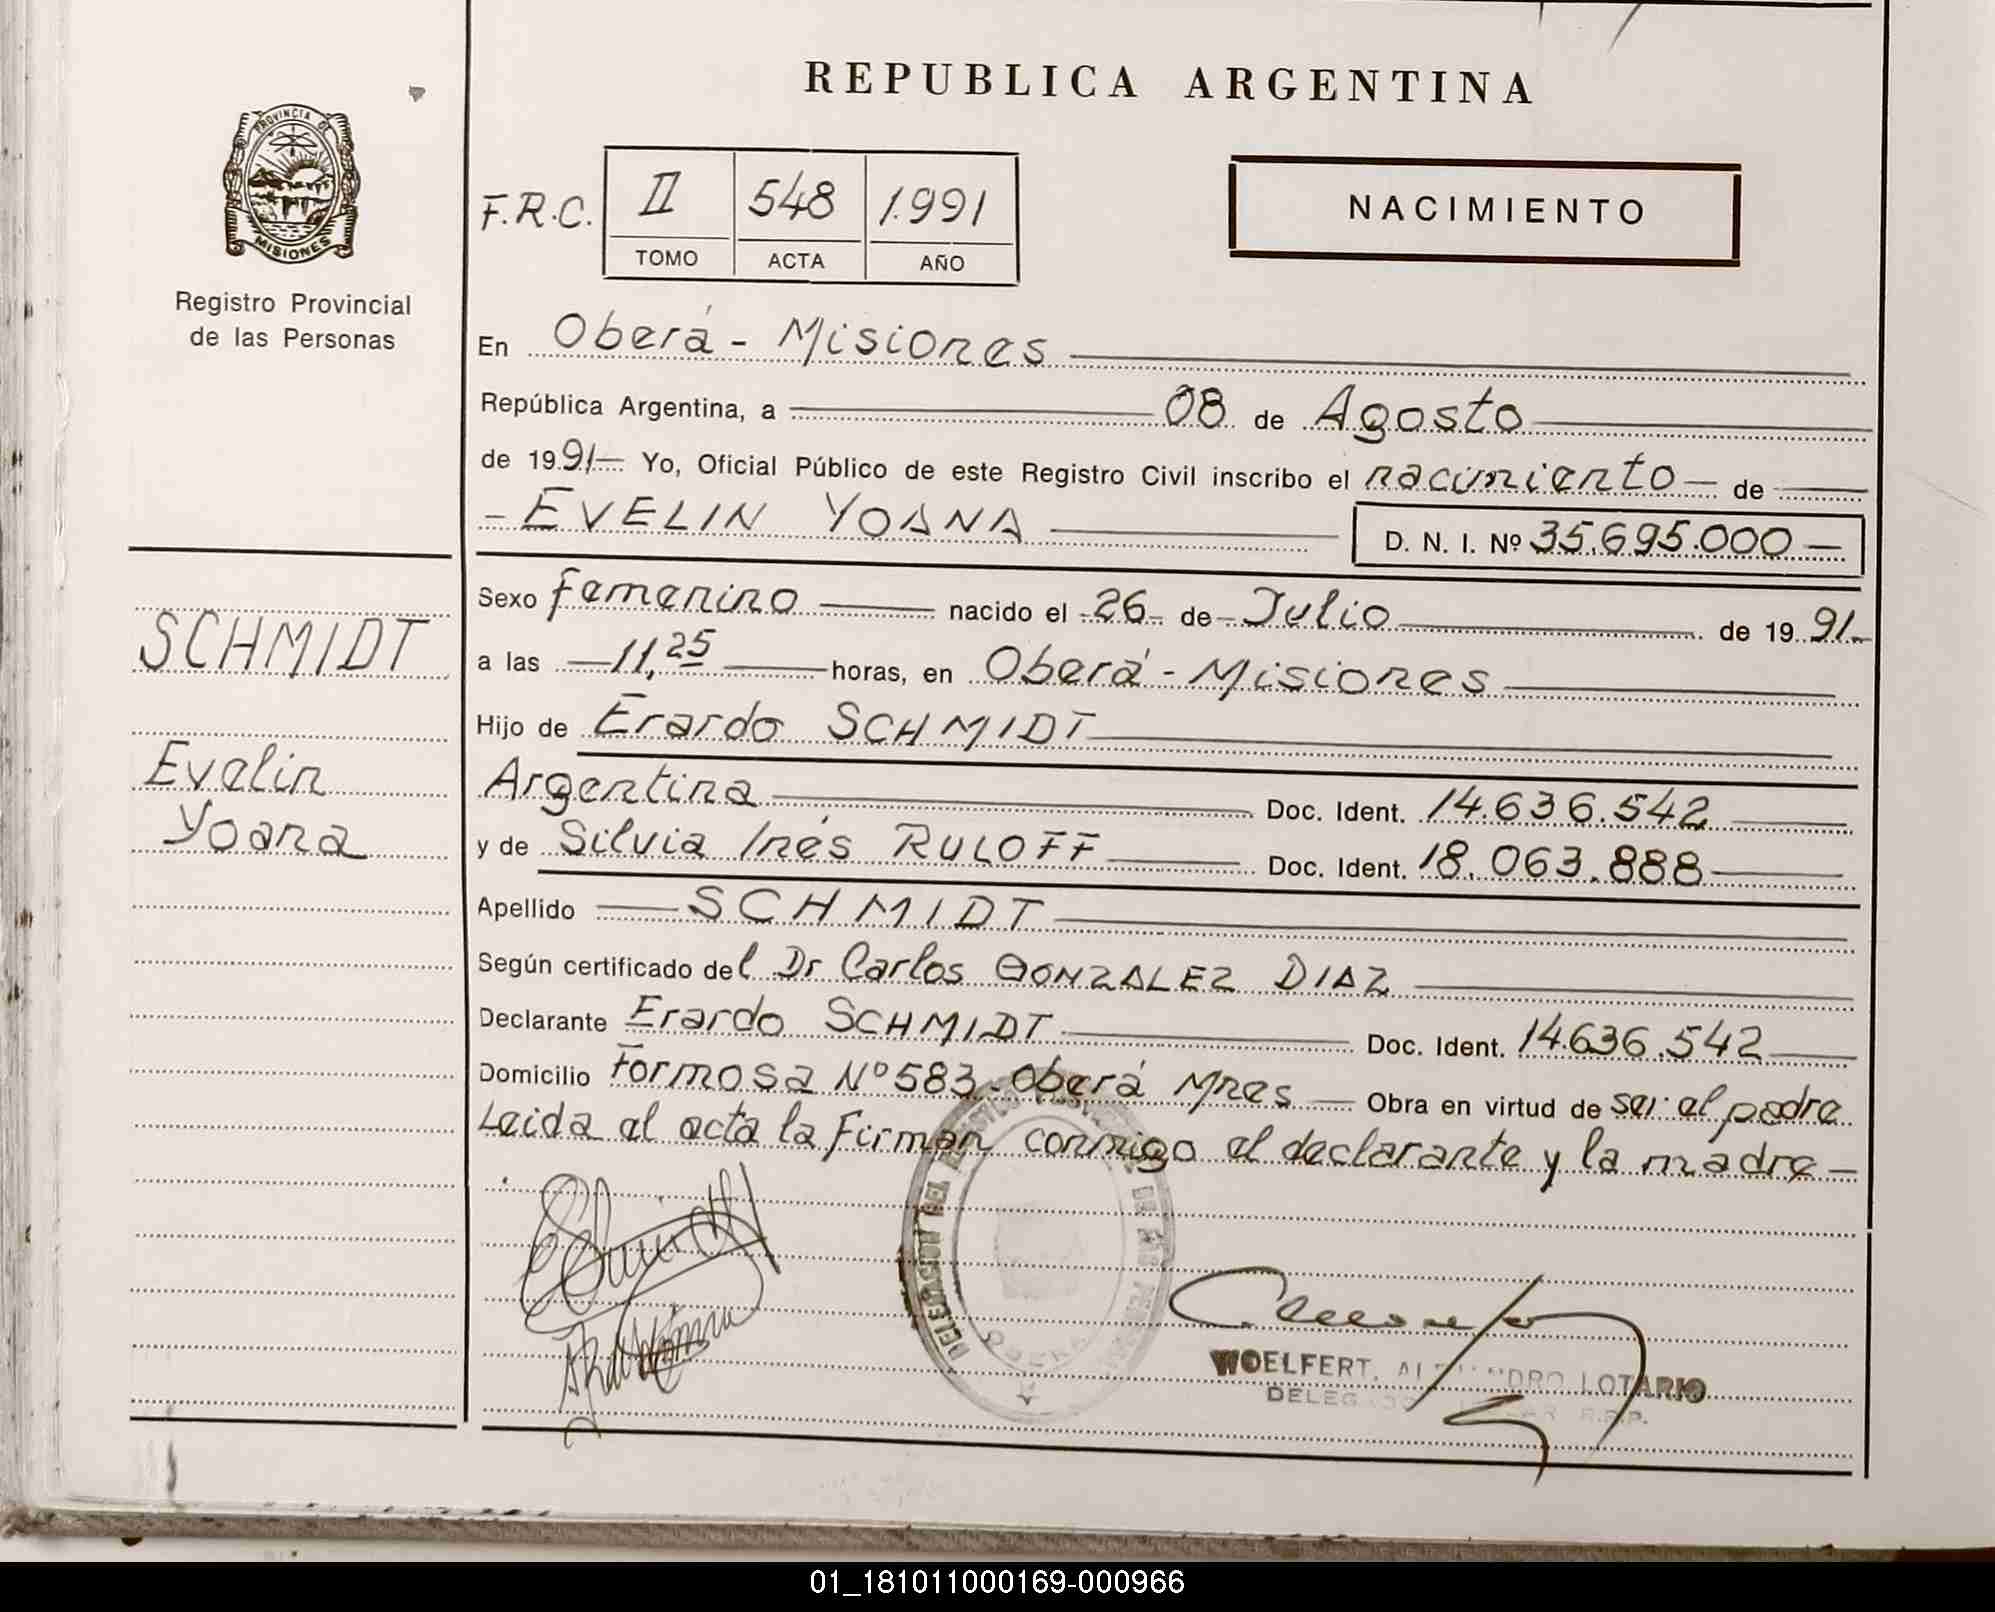 REPUBLICA ARGENTINA
PROVINCIA DE
MISIONES
Registro Provincial
de las Personas
F.R.C. II 548 1.991
TOMO ACTA AÑO
NACIMIENTO
En Oberá - Misiones
República Argentina, a 08 de Agosto
de 1991 Yo, Oficial Público de este Registro Civil inscribo el nacimiento de
EVELIN YOANA D. N. I. Nº 35.695.000
SCHMIDT
Evelin
Yoana
Sexo femenino nacido el 26 de Julio de 1991
a las 11,25 horas, en Oberá - Misiones
Hijo de Erardo SCHMIDT
Argentina Doc. Ident. 14.636.542
y de Silvia Inés RULOFF Doc. Ident. 18.063.888
Apellido SCHMIDT
Según certificado del Dr Carlos GONZALEZ DIAZ
Declarante Erardo SCHMIDT Doc. Ident. 14.636.542
Domicilio Formosa Nº 583 - Oberá Mnes Obra en virtud de ser el padre
Leida el acta la firman conmigo el declarante y la madre
DELEGACION DEL DE LAS
OBERA
WOELFERT, LOTARIO
R.P.P.
01_181011000169-000966